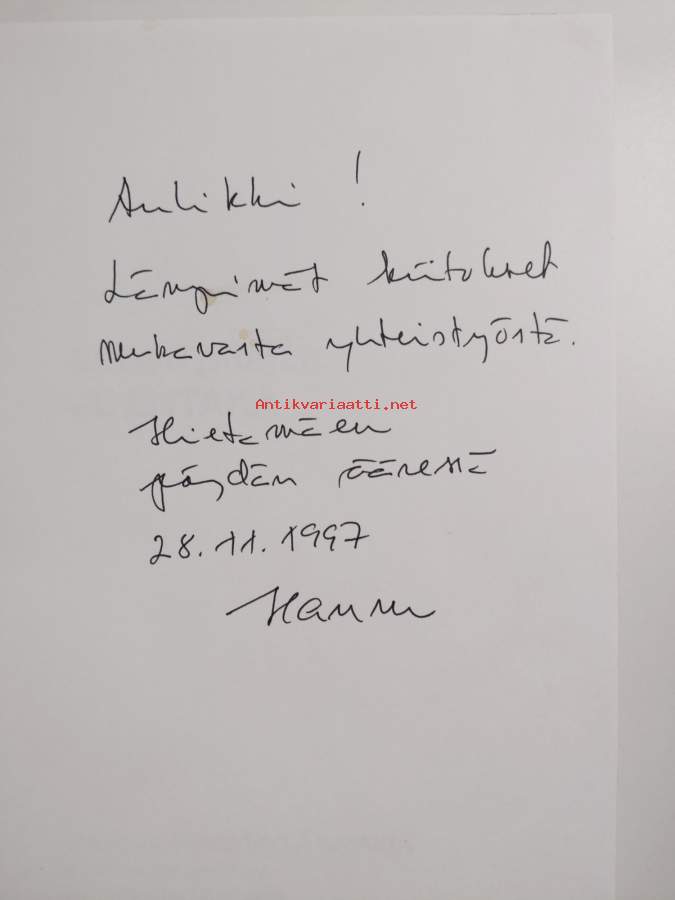 Aulikki !
Lämpimät kiitokset
mukavasta yhteistyöstä.
Antikvariaatti.net
Hietamäen
pöydän ääressä
28.11.1997
Hannu